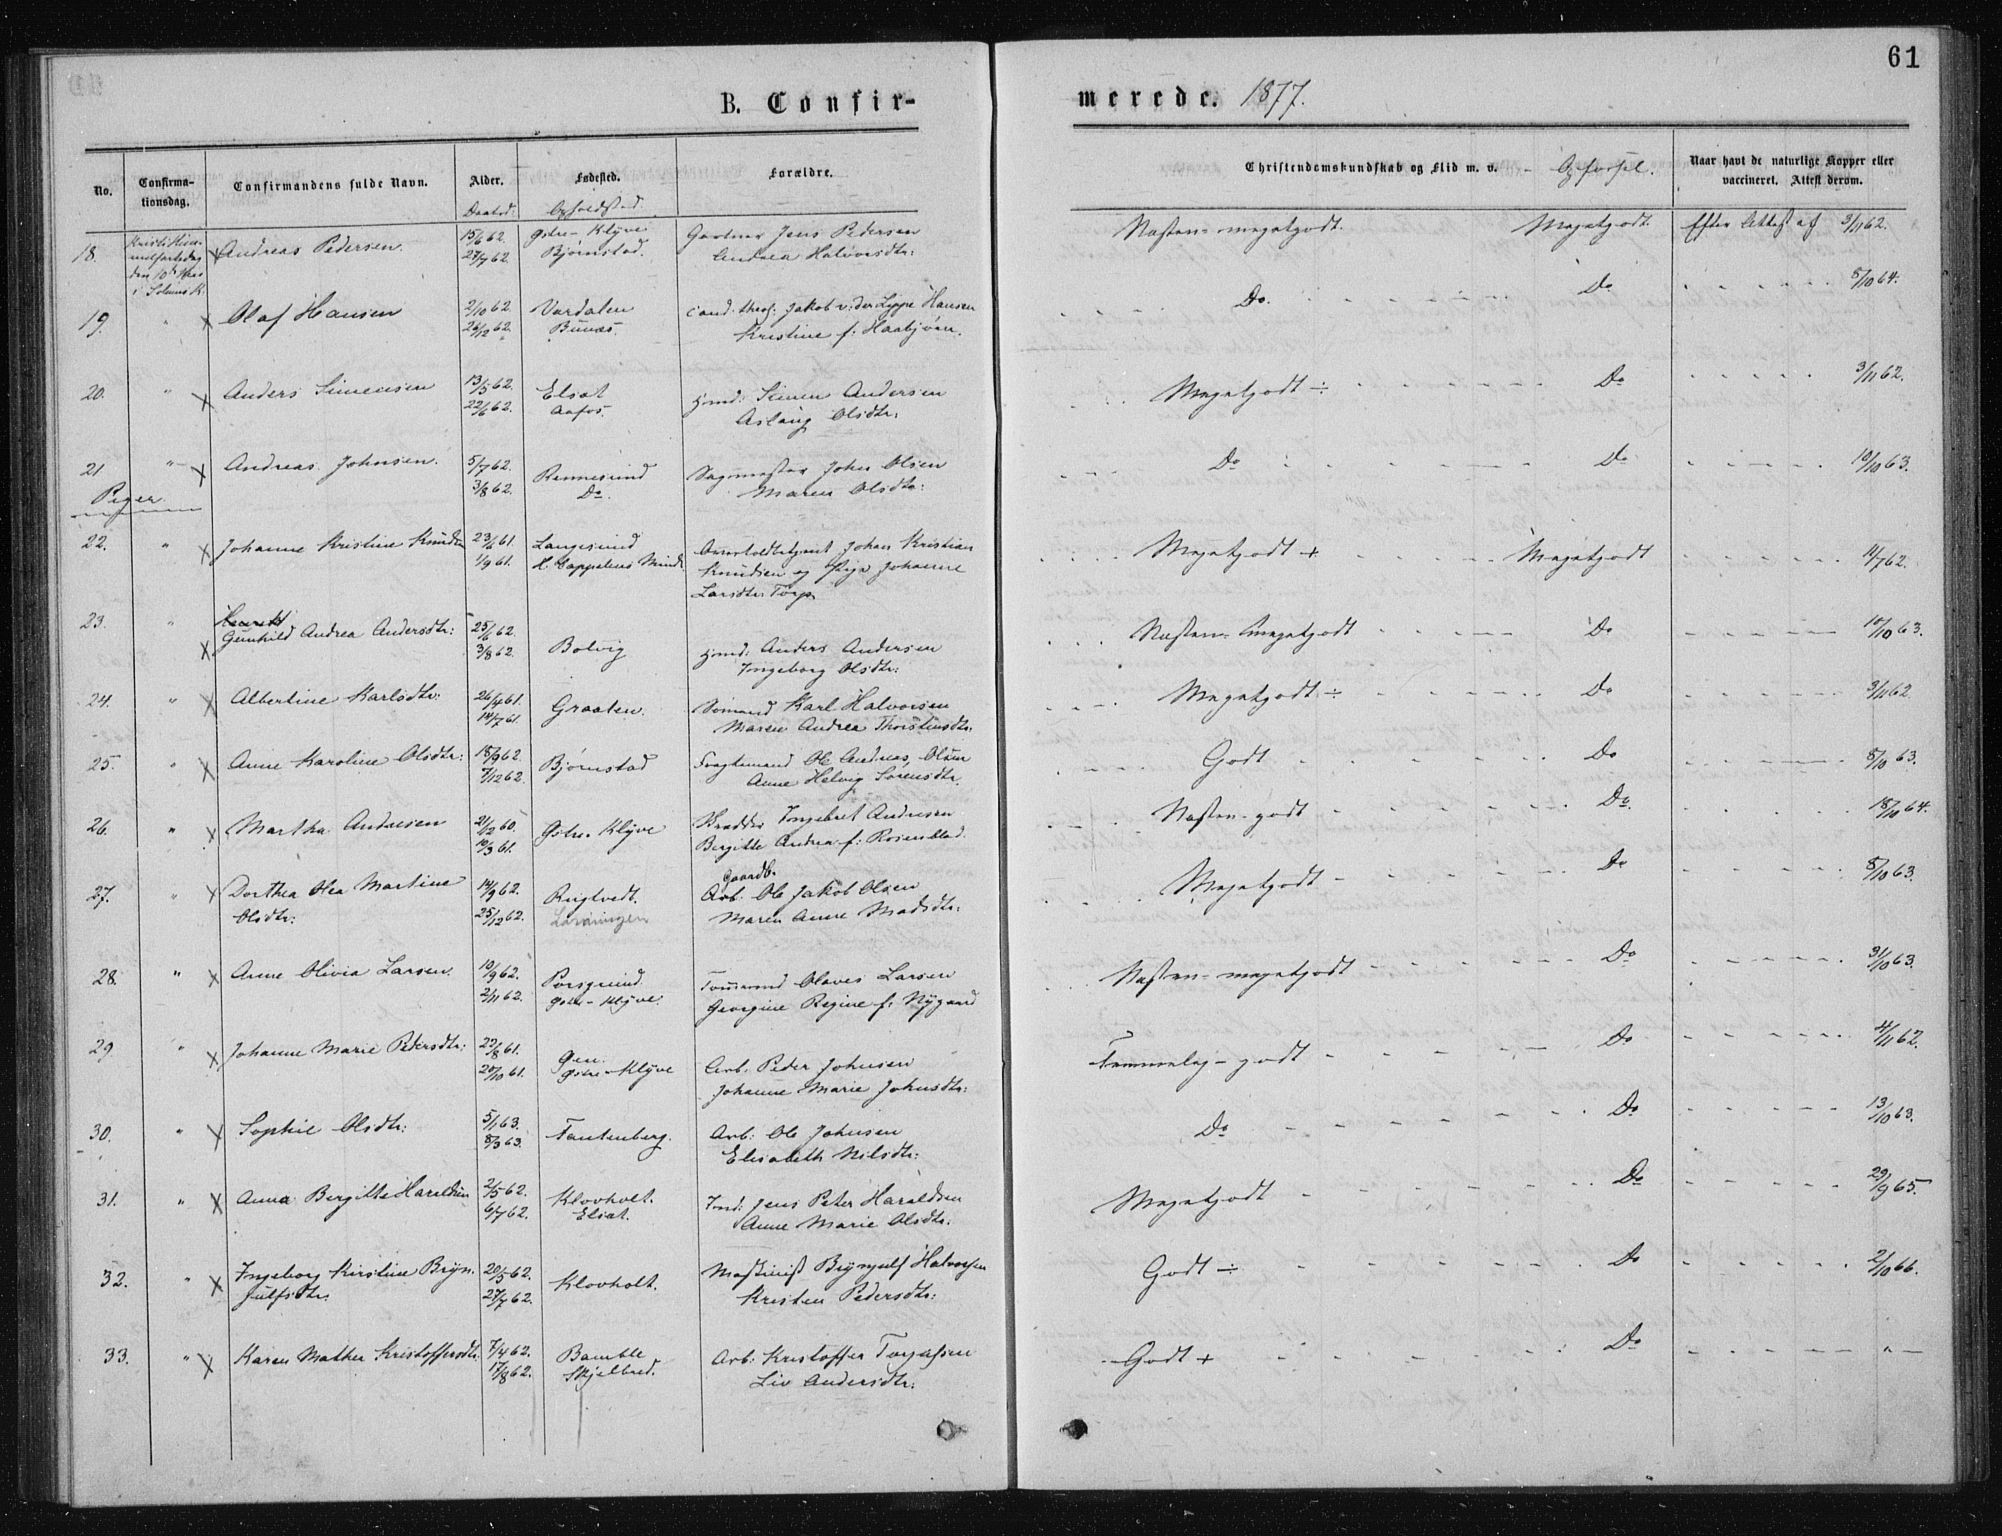 61
B. Confir-
merede. 1877.
No.
Confirma-
tionsdag.
Confirmandens fulde Navn.
Alder.
Daabsd:
Fødested.
Opholdsted.
Forældre.
Christendomskundskab og Flid m. v. - Opførsel.
Naar havt de naturlige Kopper eller
vaccineret. Attest derom.
18. Kristi Him-
melfartsdag
den 10de Mai
i Solums K.
x Andreas Pedersen 15/6 62. Østre-Klyve Gartner Jens Pedersen
27/7 62. Bjørnstad. Andrea Halvorsdtr:
Næsten-megetgodt. Megetgodt. Efter Attest af 3/11 62.
19. " x Olaf Hansen 2/10 62. Vardalen cand. theol. Jakob v: der Lippe Hansen
26/12 62. Bunæs. Kristine f.
Do. Do 8/10 64.
20. " x Anders Simensen 13/5 62. Elsat Hmd. Simen Andersen
22/6 62. Aafos. Aslaug Olsdtr:
Megetgodt ÷ Do 3/11 62.
21 " x Andreas Johnsen. 5/7 62. Rennesund Sagmester John Olsen
3/8 62. Do. Maren Olsdtr:
Do Do 10/10 63.
Piger
22. " x Johanne Kristine Knudsen 23/6 61. Langesund Johan Kristian
1/9 61. H. Cappelens Minde Knudsen og Pige Johanne
Larsdtr. Torp
Megetgodt + Megetgodt 11/7 62.
23. " x Gunhild Andrea Andersdtr: 25/6 62. Bolvig Hmd: Anders Andersen
3/8 62. Ingeborg Olsdtr:
Næsten-megetgodt Do 10/10 63.
24. " x Albertine Karlsdtr: 26/4 61. Graaten. Sømand Karl Halvorsen
14/7 61. Maren Andrea Thorstensdtr:
Megetgodt ÷ Do 3/11 62
25. " x Anne Karoline Olsdtr: 18/9 62. Bjørnstad Fragtemand Ole Andreas Olsen
7/12 62. Anne Helvig Sørensdtr.
Godt Do 8/10 63.
26. " x Martha Andresen 21/12 60. Østre-Klyve Skrædder Ingebret Andresen
10/3 61. Bergitte Andrea f: Rosenblad.
Næsten-godt Do. 18/10 64.
27. " x Dorthea Olea Martine 14/9 62. Rugtvedt. Gaardb.
Arb. Ole Jakob Olsen
Olsdtr: 25/12 62. Maren Anne Madsdtr:
Megetgodt Do 8/10 63.
28. " x Anne Olivia Larsen. 10/9 62. Porsgrund Tømmermd Olaves Larsen
2/11 62. Østre-Klyve. Georgine Regine f: Nygaard
Næsten-megetgodt Do 31/10 63.
29 " x Johanne Marie Pedersdtr: 22/8 61. Øen. Arb. Peder Johnsen
20/10 61. Østre-Klyve Johanne Marie Johnsdtr:
Temmelig-godt Do 4/11 62.
30. " x Sophie Olsdtr: 5/1 63. Fantenberg. Arb: Ole Johnsen
8/3 63. Elisabeth Nilsdtr:
Do Do 13/10 63.
31. " x Anna Bergitte Haraldsen 2/5 62. Klovholt. Jens Peter Haraldsen
6/7 62. Elsat. Anne Marie Olsdtr.
Megetgodt Do 29/9 65.
32. " x Ingeborg Kirstine Bryn- 20/5 62. Klovholt. Maskinist Brynjulf Halvorsen
julfsdtr. 27/7 62. Kristen Pedersdtr:
Godt ÷ Do 2/10 66.
33. " x Karen Mathea Kristoffersdtr. 7/4 62. Bamble Arb: Kristoffer Torjussen
17/8 62. Skjelbred. Liv Andersdtr:
Godt + Do "